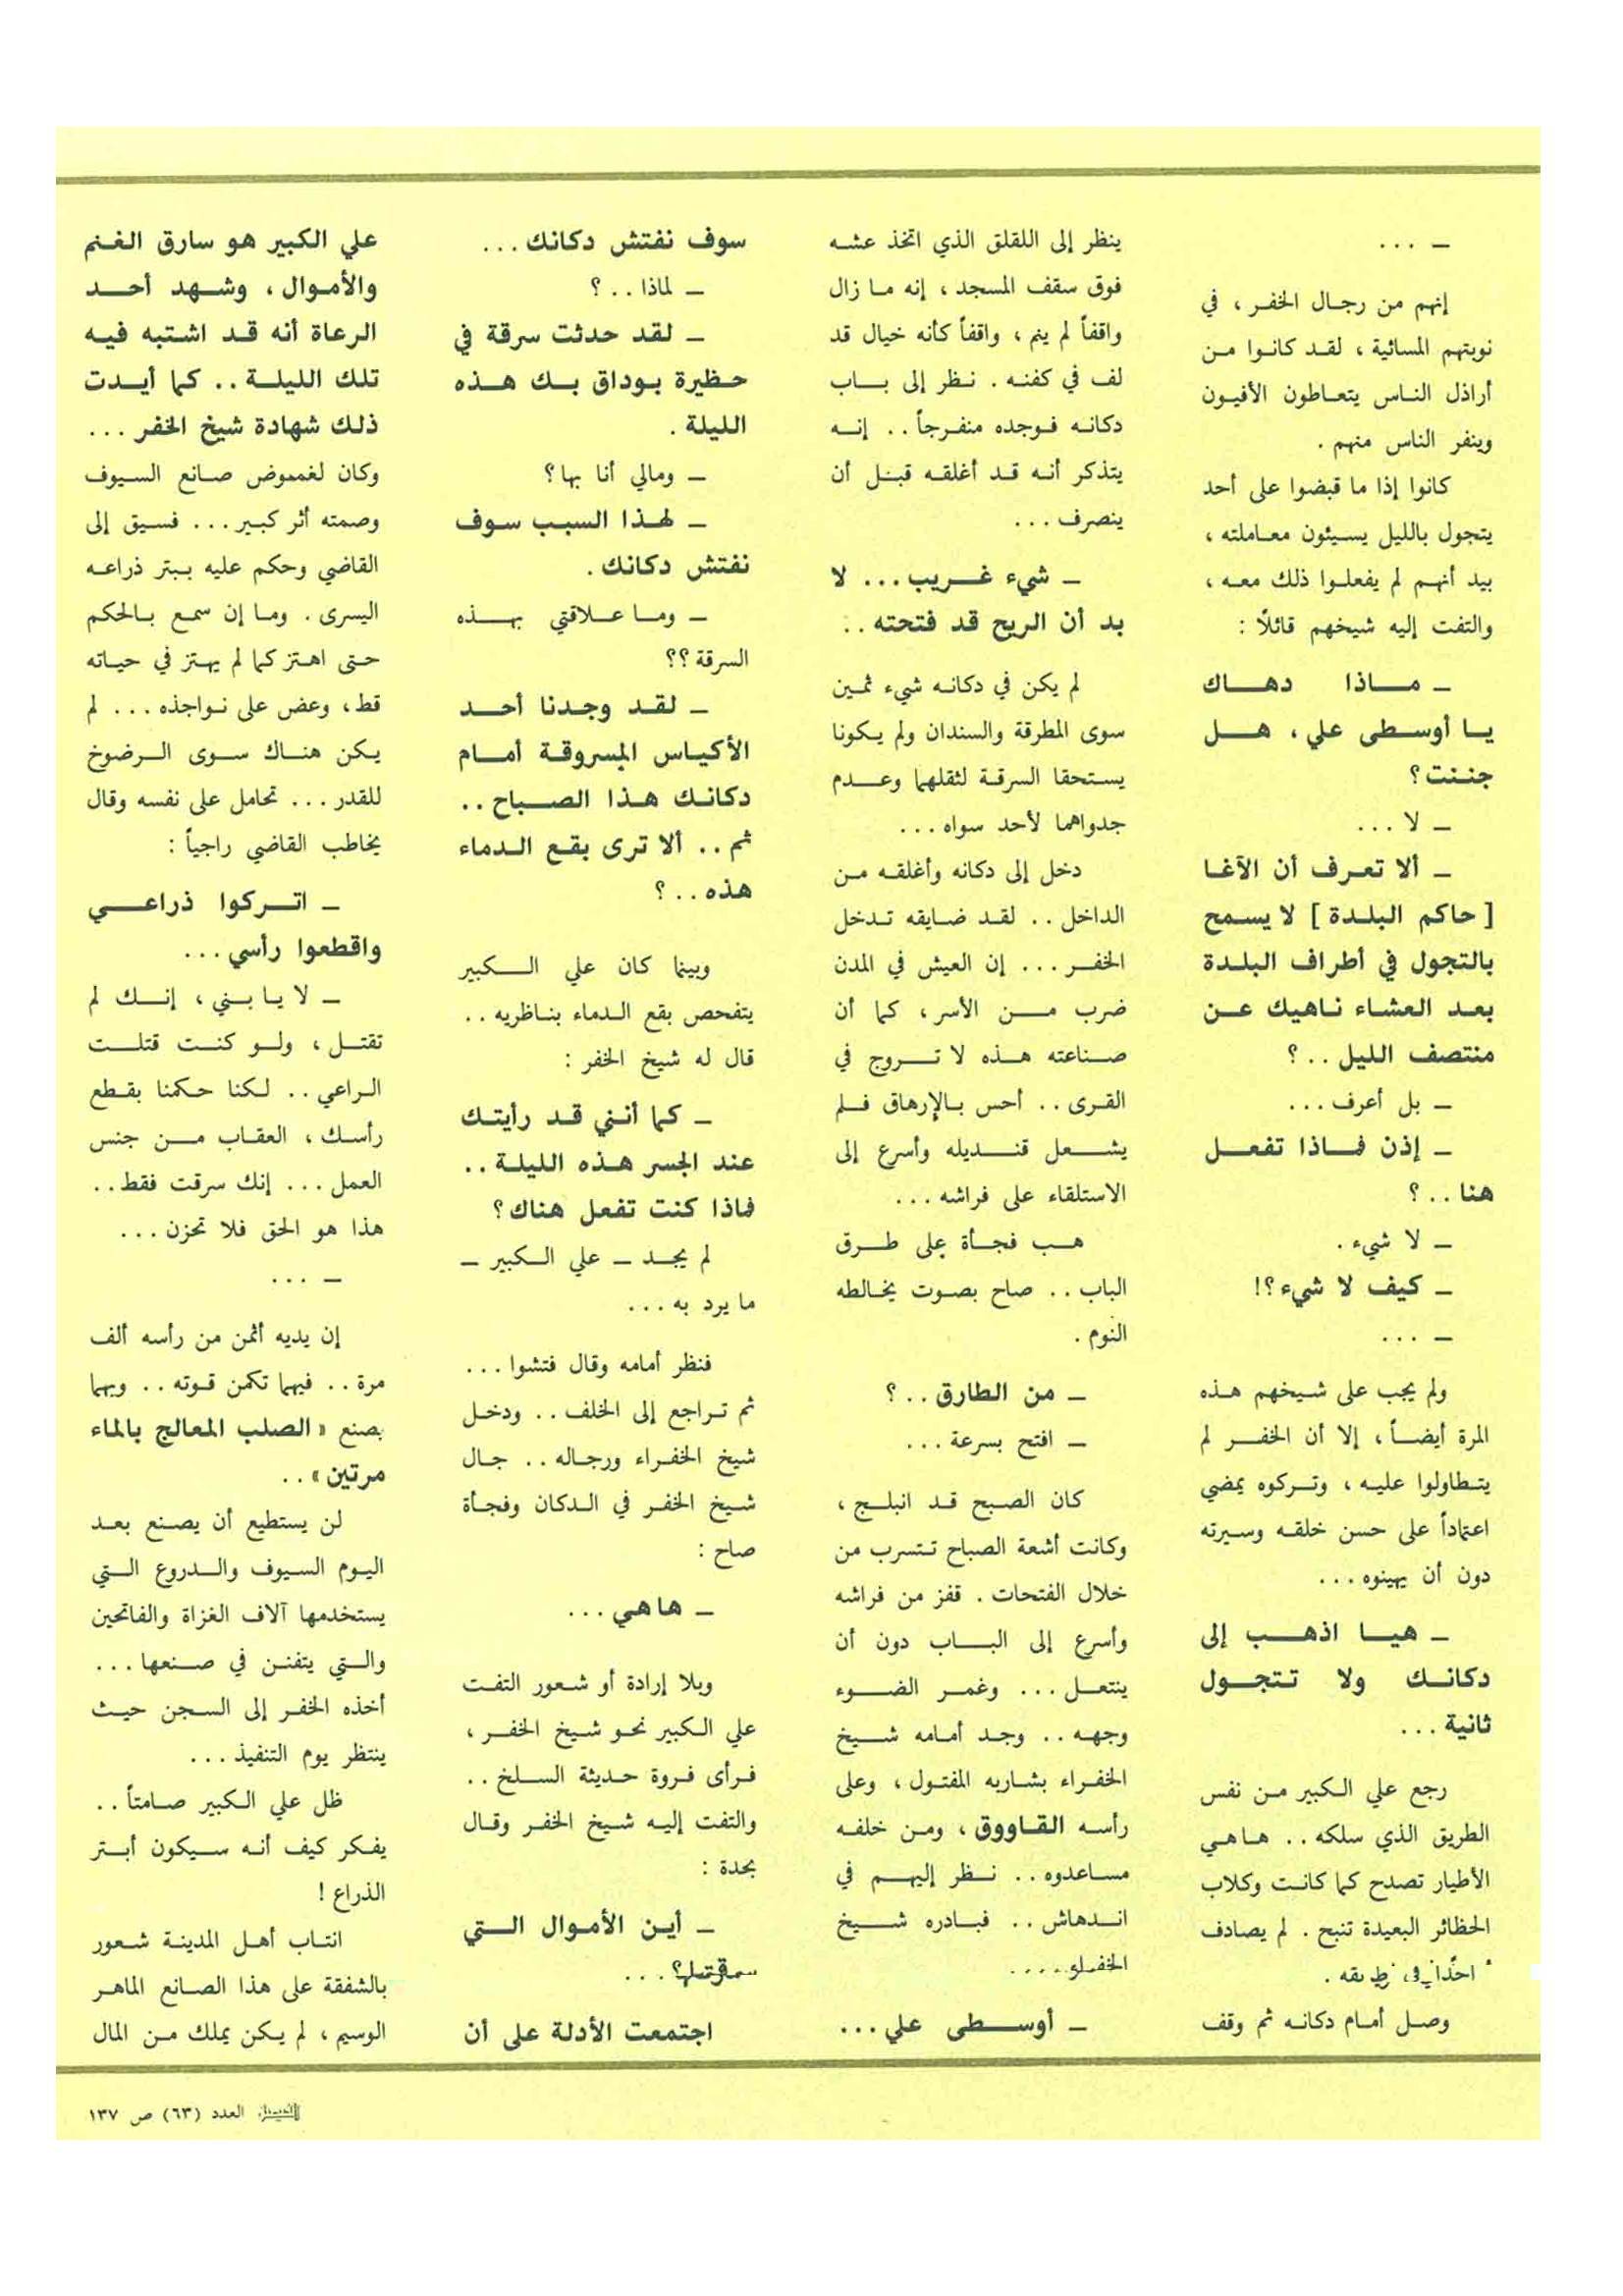 ـ ...
إنهم من رجال الخفر ، في
نوبتهم المسائية ، لقد كانوا من
أراذل الناس يتعاطون الأفيون
وينفر الناس منهم .
كانوا إذا ما قبضوا على أحد
يتجول بالليل يسيئون معاملته ،
بيد أنهم لم يفعلوا ذلك معه ،
والتفت إليه شيخهم قائلاً :
ـ ماذا دهاك
يا أوسطى علي ، هل
جننت ؟
ـ لا ...
ـ ألا تعرف أن الآغا
[ حاكم البلدة ] لا يسمح
بالتجول في أطراف البلدة
بعد العشاء ناهيك عن
منتصف الليل .. ؟
ـ بل أعرف ...
ـ إذن فماذا تفعل
هنا .. ؟
ـ لا شيء .
ـ كيف لا شيء ؟!
ـ ...
ولم يجب على شيخهم هذه
المرة أيضاً ، إلا أن الخفر لم
يتطاولوا عليه ، وتركوه يمضي
اعتماداً على حسن خلقه وسيرته
دون أن يهينوه ...
ـ هيا اذهب إلى
دكانك ولا تتجول
ثانية ...
رجع علي الكبير من نفس
الطريق الذي سلكه .. هاهي
الأطيار تصدح كما كانت وكلاب
الحظائر البعيدة تنبح . لم يصادف
أحدًا في طريقه .
وصل أمام دكانه ثم وقف
ينظر إلى اللقلق الذي اتخذ عشه
فوق سقف المسجد ، إنه ما زال
واقفاً لم ينم ، واقفاً كأنه خيال قد
لف في كفنه . نظر إلى باب
دكانه فوجده منفرجاً .. إنه
يتذكر أنه قد أغلقه قبل أن
ينصرف ...
ـ شيء غريب ... لا
بد أن الريح قد فتحته ..
لم يكن في دكانه شيء ثمين
سوى المطرقة والسندان ولم يكونا
يستحقا السرقة لثقلهما وعدم
جدواهما لأحد سواه ...
دخل إلى دكانه وأغلقه من
الداخل .. لقد ضايقه تدخل
الخفر ... إن العيش في المدن
ضرب من الأسر ، كما أن
صناعته هذه لا تروج في
القرى .. أحس بالإرهاق فلم
يشعل قنديله وأسرع إلى
الاستلقاء على فراشه ...
هب فجأة على طرق
الباب .. صاح بصوت يخالطه
النوم .
ـ من الطارق .. ؟
ـ افتح بسرعة ...
كان الصبح قد انبلج ،
وكانت أشعة الصباح تتسرب من
خلال الفتحات . قفز من فراشه
وأسرع إلى الباب دون أن
ينتعل ... وغمر الضوء
وجهه .. وجد أمامه شيخ
الخفراء بشاربه المفتول ، وعلى
رأسه القاووق ، ومن خلفه
مساعدوه .. نظر إليهم في
اندهاش .. فبادره شيخ
ـ أوسطى علي ...
سوف نفتش دكانك ...
ـ لماذا .. ؟
ـ لقد حدثت سرقة في
حظيرة بوداق بك هذه
الليلة .
ـ ومالي أنا بها ؟
ـ لهذا السبب سوف
نفتش دكانك .
ـ وما علاقتي بهذه
السرقة ؟؟
ـ لقد وجدنا أحد
الأكياس المسروقة أمام
دكانك هذا الصباح ..
ثم .. ألا ترى بقع الدماء
هذه .. ؟
وبينما كان علي الكبير
يتفحص بقع الدماء بناظريه ..
قال له شيخ الخفر :
ـ كما أنني قد رأيتك
عند الجسر هذه الليلة ..
فماذا كنت تفعل هناك ؟
لم يجد ـ علي الكبير ـ
ما يرد به ...
فنظر أمامه وقال فتشوا ...
ثم تراجع إلى الخلف .. ودخل
شيخ الخفراء ورجاله .. جال
شيخ الخفر في الدكان وفجأة
صاح :
ـ هاهي ...
وبلا إرادة أو شعور التفت
علي الكبير نحو شيخ الخفر ،
فرأى فروة حديثة السلخ ..
والتفت إليه شيخ الخفر وقال
بحدة :
ـ أين الأموال التي
سرقتها ؟ ...
اجتمعت الأدلة على أن
علي الكبير هو سارق الغنم
والأموال ، وشهد أحد
الرعاة أنه قد اشتبه فيه
تلك الليلة .. كما أيدت
ذلك شهادة شيخ الخفر ...
وكان لغموض صانع السيوف
وصمته أثر كبير ... فسيق إلى
القاضي وحكم عليه ببتر ذراعه
اليسرى . وما إن سمع بالحكم
حتى اهتز كما لم يهتز في حياته
قط ، وعض على نواجذه ... لم
يكن هناك سوى الرضوخ
للقدر ... تحامل على نفسه وقال
يخاطب القاضي راجياً :
ـ اتركوا ذراعي
واقطعوا رأسي ...
ـ لا يا بني ، إنك لم
تقتل ، ولو كنت قتلت
الراعي .. لكنا حكمنا بقطع
رأسك ، العقاب من جنس
العمل ... إنك سرقت فقط ..
هذا هو الحق فلا تحزن ...
ـ ...
إن يديه أثمن من رأسه ألف
مرة .. فيهما تكمن قوته .. وبهما
يصنع « الصلب المعالج بالماء
مرتين » ..
لن يستطيع أن يصنع بعد
اليوم السيوف والدروع التي
يستخدمها آلاف الغزاة والفاتحين
والتي يتفنن في صنعها ...
أخذه الخفر إلى السجن حيث
ينتظر يوم التنفيذ ...
ظل علي الكبير صامتاً ..
يفكر كيف أنه سيكون أبتر
الذراع !
انتاب أهل المدينة شعور
بالشفقة على هذا الصانع الماهر
الوسيم ، لم يكن يملك من المال
الفيصل العدد (٦٣) ص ١٣٧